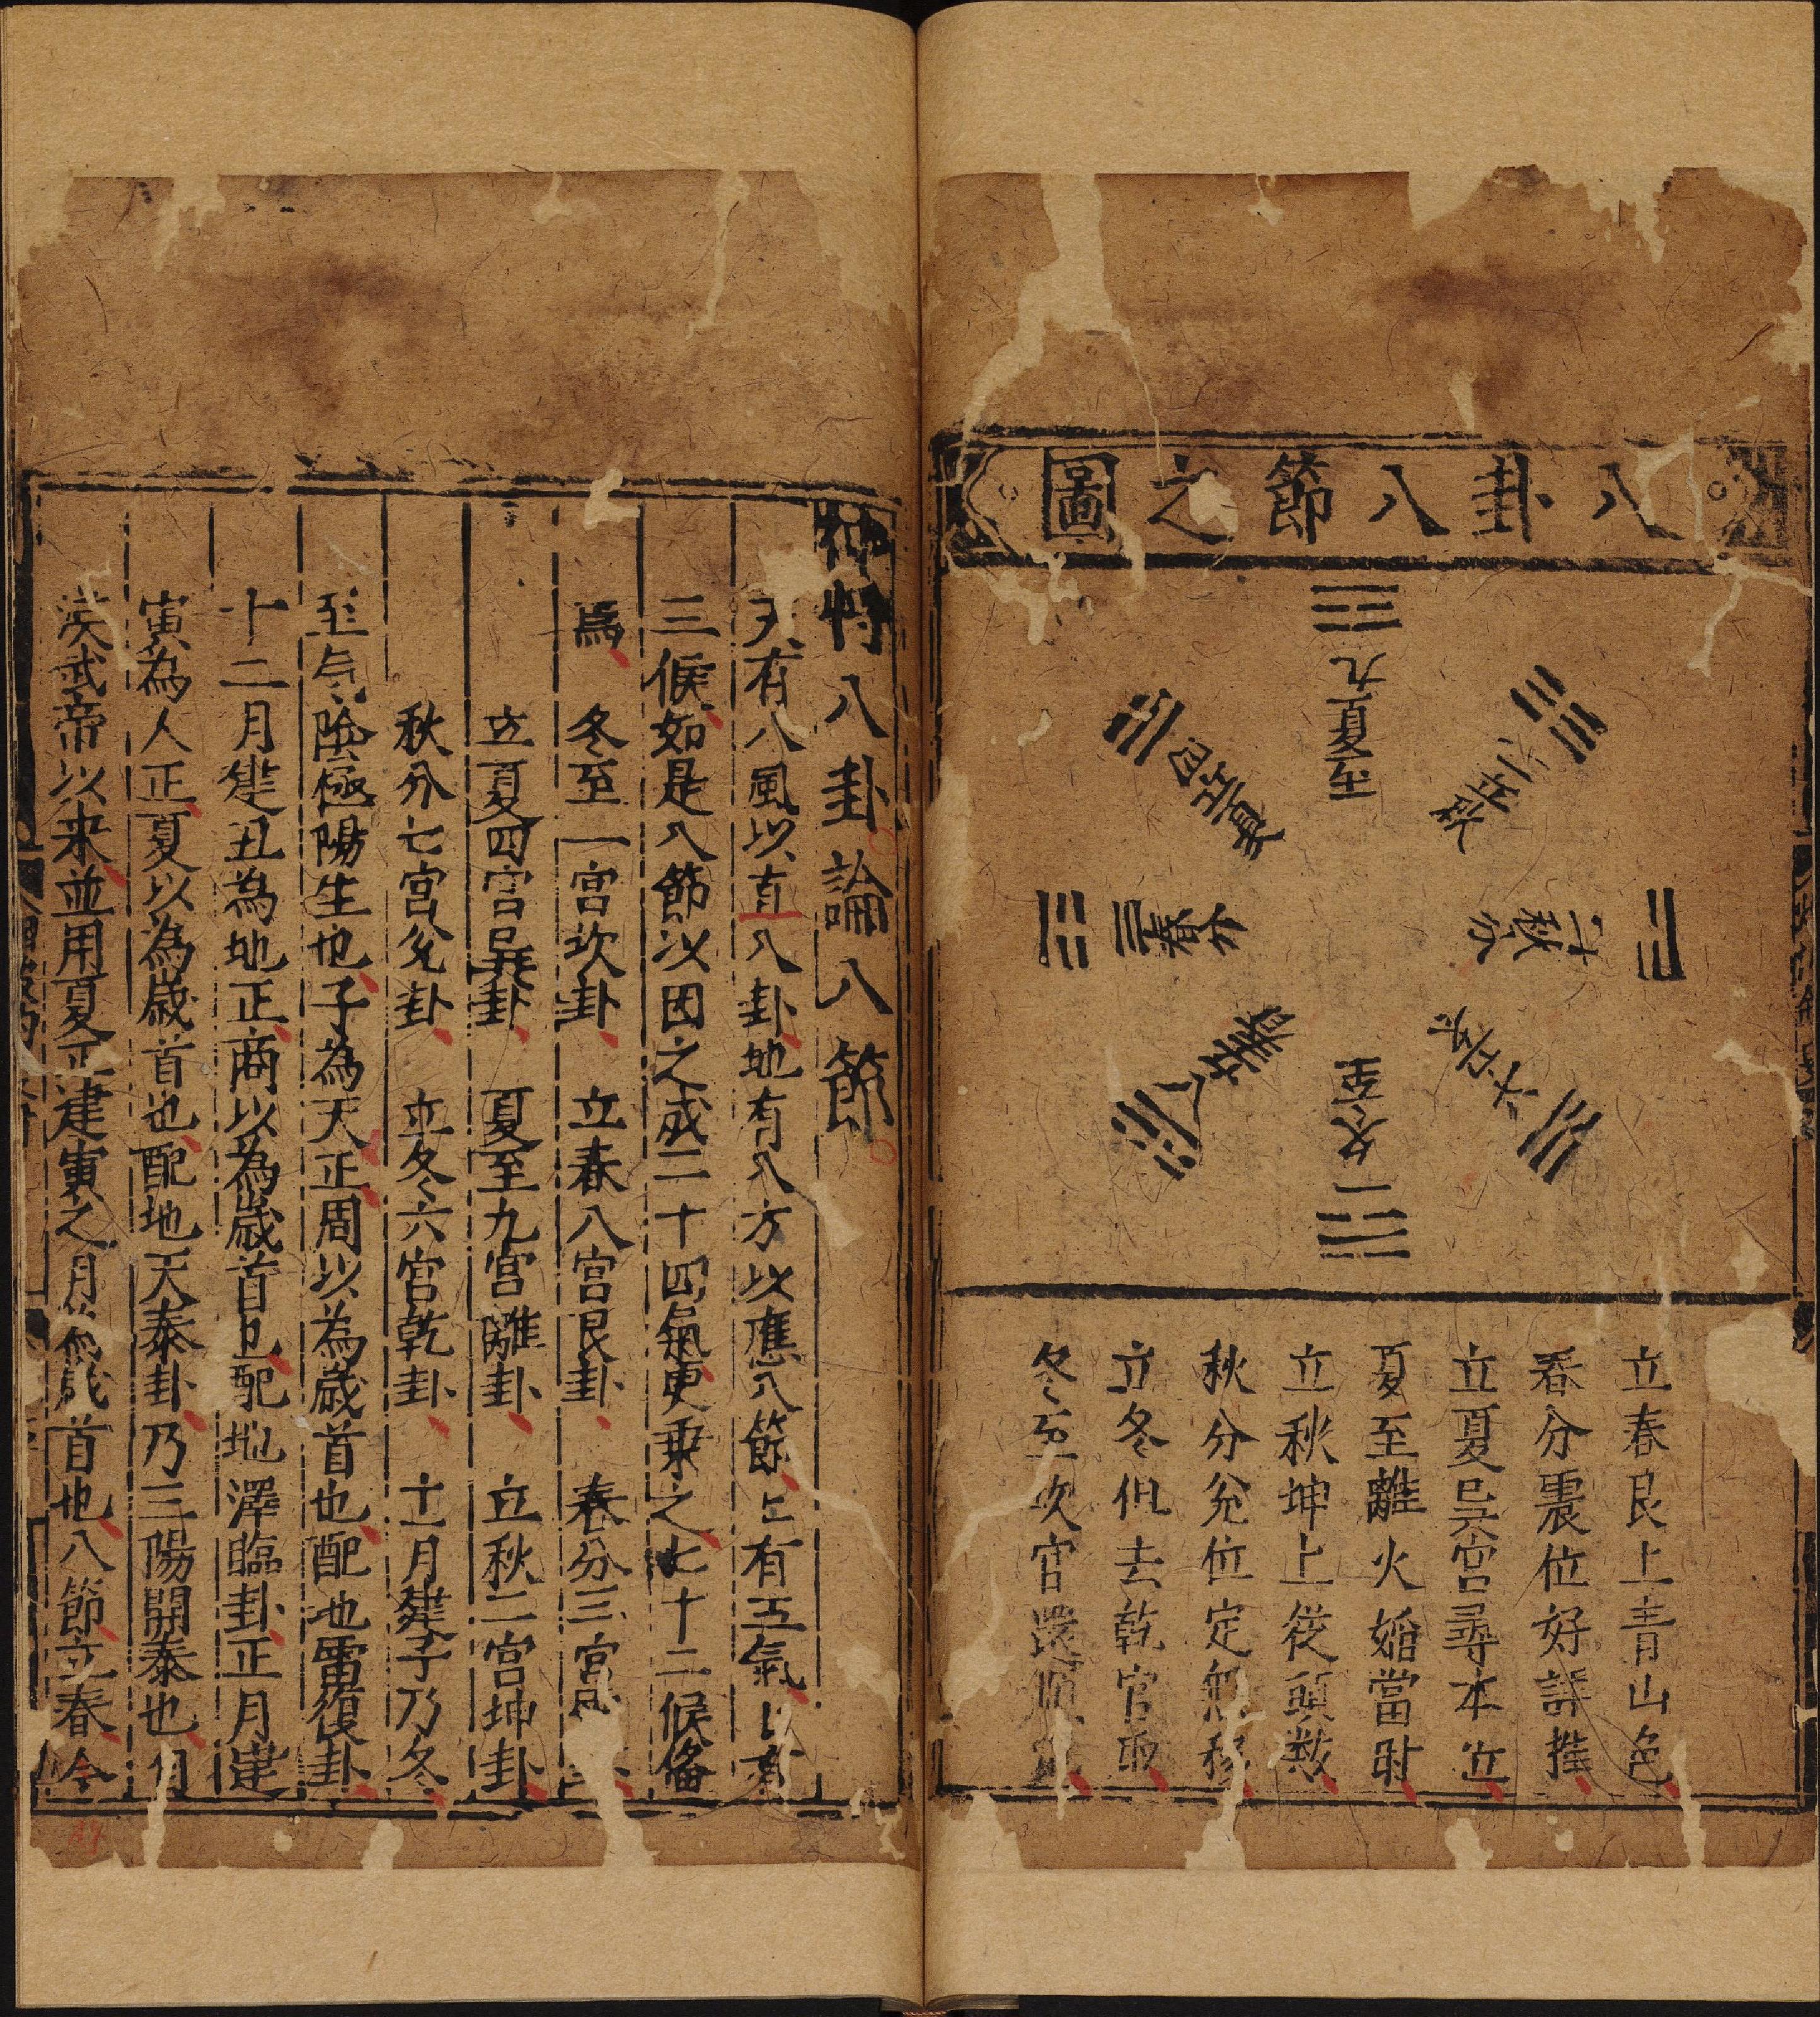 八卦八節之圖
九
夏至
二立秋
七秋分
六立冬
一
冬至
八立春
三春分
四立夏
立春艮上青山色
春分震位好詳推
立夏巽宮尋本位
夏至離火始當時
立秋坤上從頭数
秋分兌位定無移
立冬但去乾宮取
冬至坎宮還順
八卦論八節
天有八風以直八卦地有八方以應八節上有五氣以有
三候如是八節以因之成二十四氣更乗之七十二候備
焉
冬至一宮坎卦 立春八宮艮卦 春分三宮
立夏四宮巽卦 夏至九宮離卦 立秋二宮坤卦
秋分七宮兌卦 立冬六宮乾卦 十一月建子乃冬
至氣陰極陽生也子為天正周以為歲首也配地雷復卦
十二月建丑為地正商以為歲首也配地澤臨卦正月建
寅為人正夏以為歲首也配地天泰卦乃三陽開泰也自
漢武帝以来並用夏正建寅之月為歲首也八節立春今